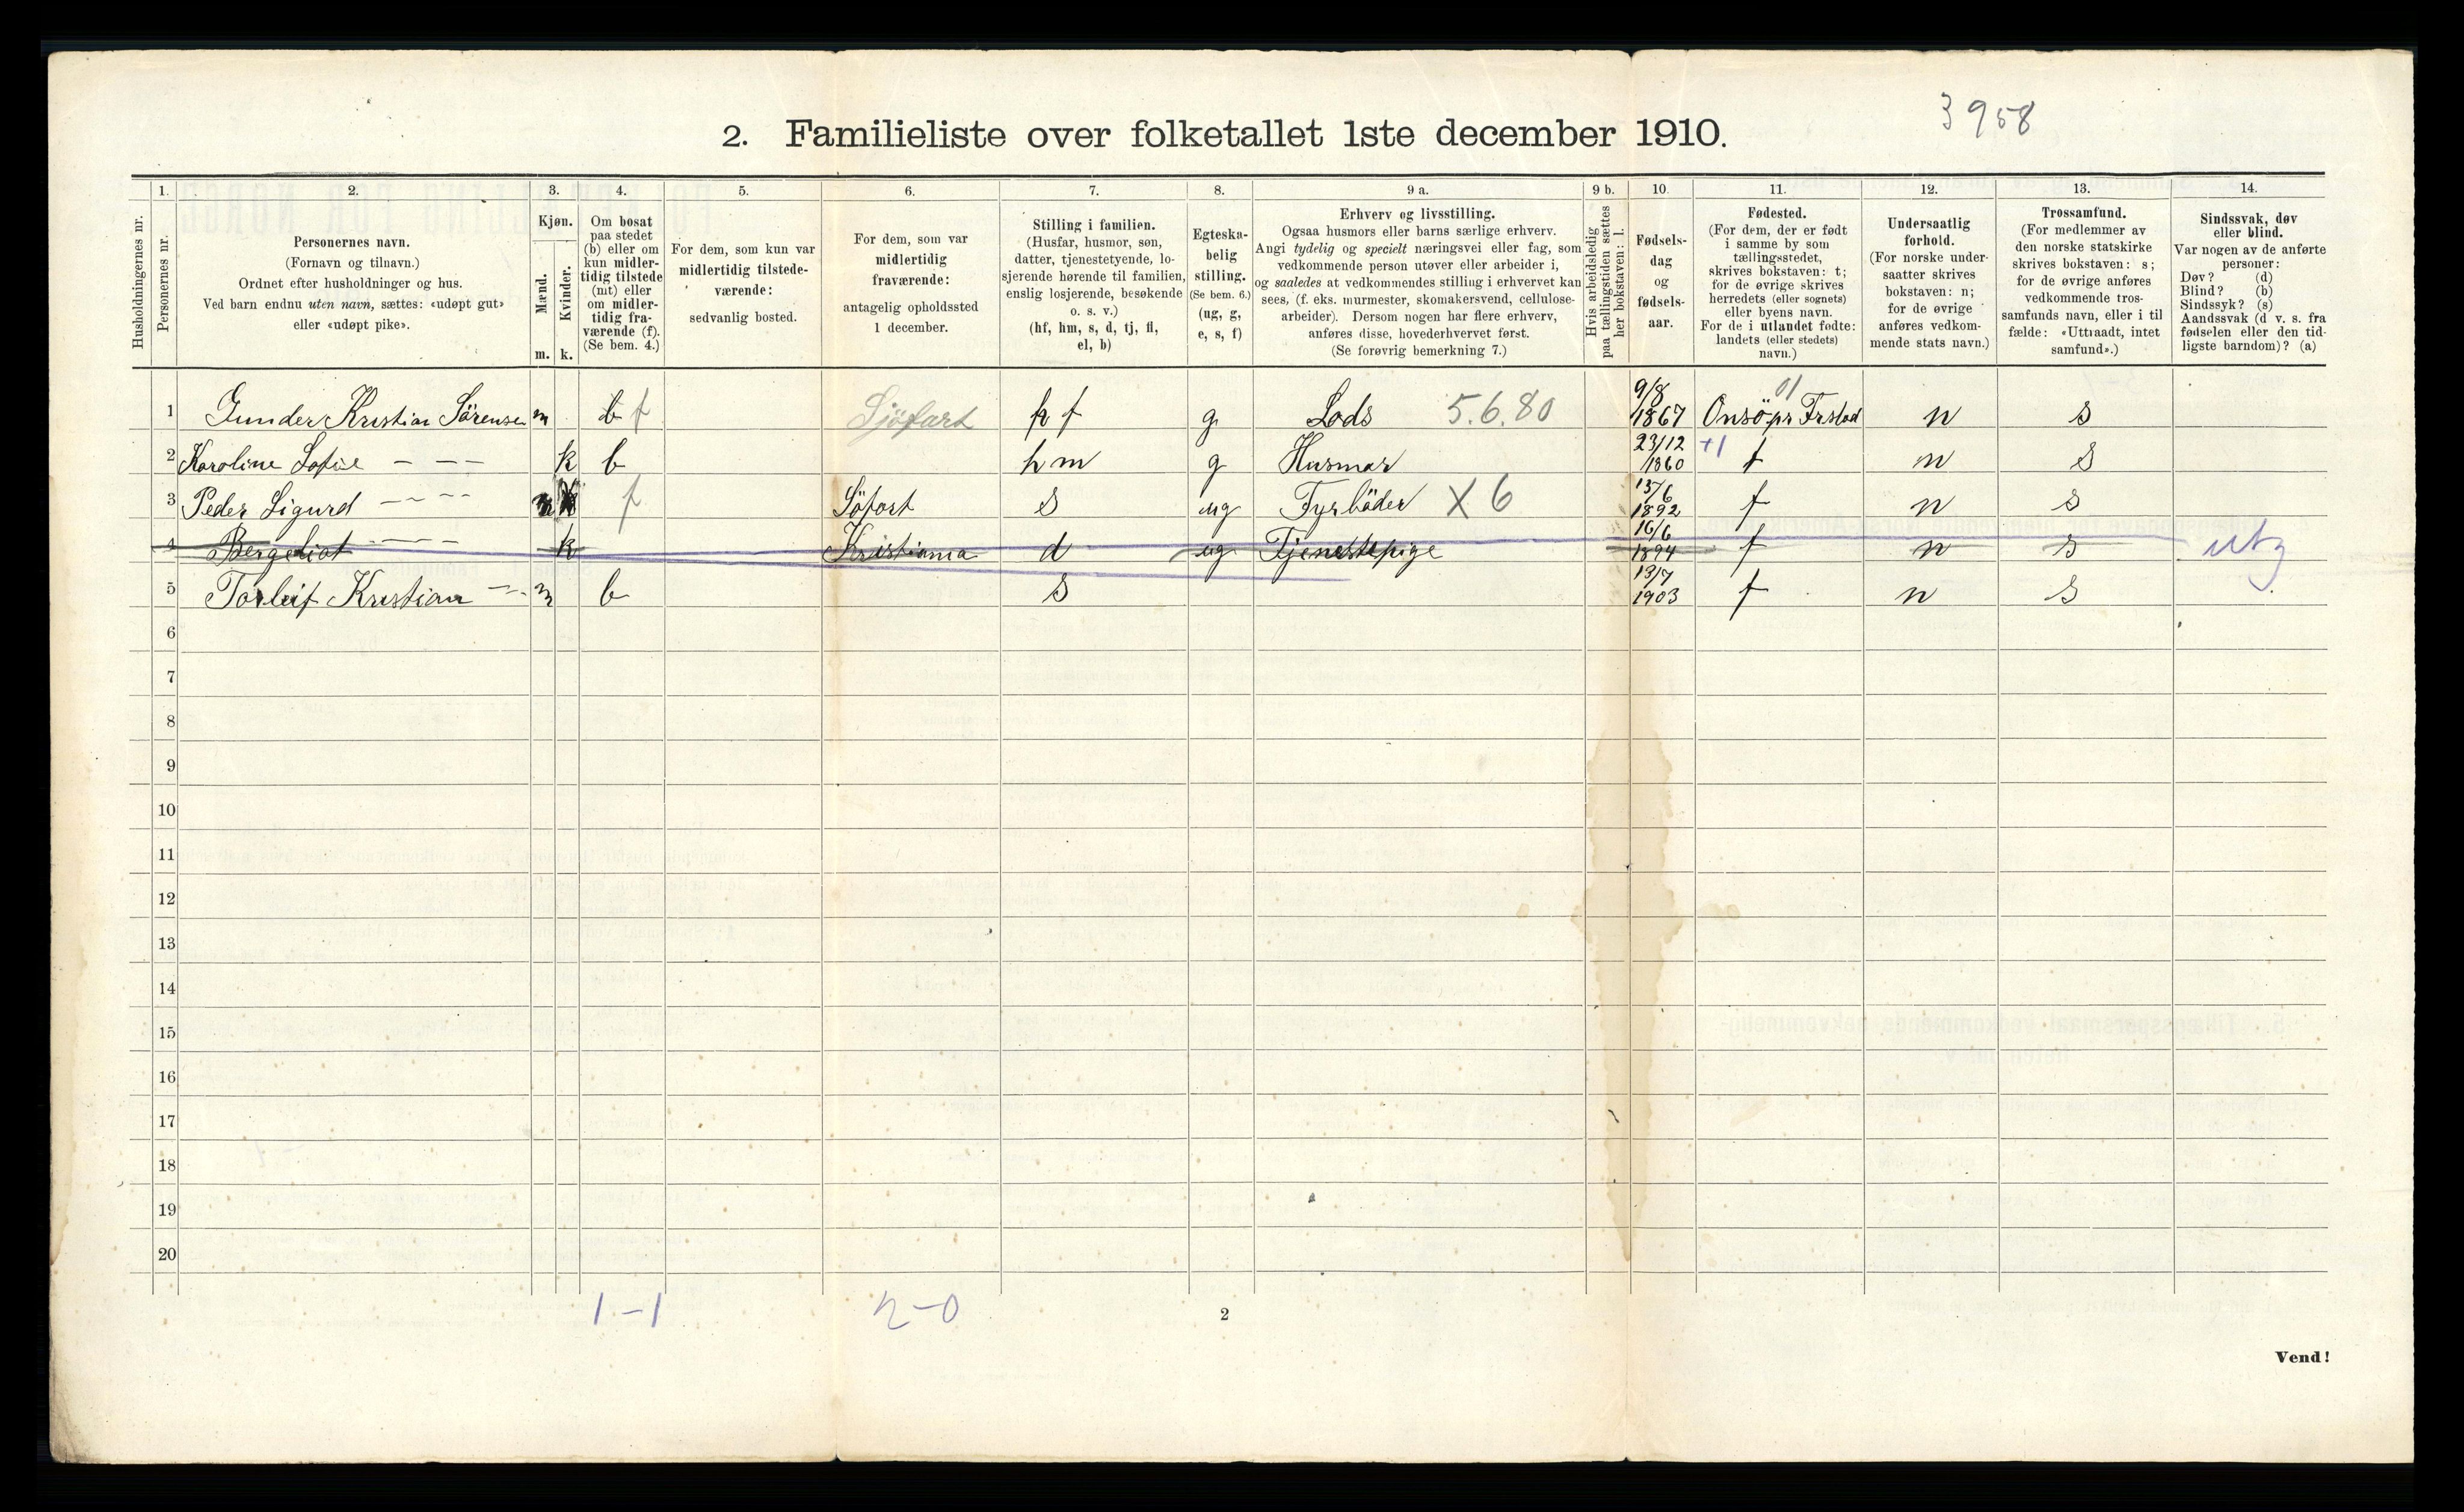 3958
2. Familieliste over folketallet 1ste december 1910.
1. 2. 3. 4. 5. 6. 7. 8. 9 a. 9 b. 10. 11. 12. 13. 14.
Husholdningernes nr.
Personernes nr.
Personernes navn.
(Fornavn og tilnavn.)
Ordnet efter husholdninger og hus.
Ved barn endnu uten navn, sættes: «udøpt gut»
eller «udøpt pike».
Kjøn.
Mænd.
m.
Kvinder.
k.
Om bosat
paa stedet
(b) eller om
kun midler-
tidig tilstede
(mt) eller
om midler-
tidig fra-
værende (f).
(Se bem. 4.)
For dem, som kun var
midlertidig tilstede-
værende:
sedvanlig bosted.
For dem, som var
midlertidig
fraværende:
antagelig opholdssted
1 december.
Stilling i familien.
(Husfar, husmor, søn,
datter, tjenestetyende, lo-
sjerende hørende til familien,
enslig losjerende, besøkende
o. s. v.)
(hf, hm, s, d, tj, fl,
el, b)
Egteska-
belig
stilling.
(Se bem. 6.)
(ug, g,
e, s, f)
Erhverv og livsstilling.
Ogsaa husmors eller barns særlige erhverv.
Angi tydelig og specielt næringsvei eller fag, som
vedkommende person utøver eller arbeider i,
og saaledes at vedkommendes stilling i erhvervet kan
sees, (f. eks. murmester, skomakersvend, cellulose-
arbeider). Dersom nogen har flere erhverv,
anføres disse, hovederhvervet først.
(Se forøvrig bemerkning 7.)
Hvis arbeidsledig
paa tællingstiden sættes
her bokstaven: l.
Fødsels-
dag
og
fødsels-
aar.
Fødested.
(For dem, der er født
i samme by som
tællingsstedet,
skrives bokstaven: t;
for de øvrige skrives
herredets (eller sognets)
eller byens navn.
For de i utlandet fødte:
landets (eller stedets)
navn.)
Undersaatlig
forhold.
(For norske under-
saatter skrives
bokstaven: n;
for de øvrige
anføres vedkom-
mende stats navn.)
Trossamfund.
(For medlemmer av
den norske statskirke
skrives bokstaven: s;
for de øvrige anføres
vedkommende tros-
samfunds navn, eller i til
fælde: «Uttraadt, intet
samfund».)
Sindssvak, døv
eller blind.
Var nogen av de anførte
personer:
Døv? (d)
Blind? (b)
Sindssyk? (s)
Aandssvak (d v. s. fra
fødselen eller den tid-
ligste barndom)? (a)
1 Gunder Kristian Sörensen m b f Sjöfart hf g Lods 5.6.80 9/8 1867 01 Onsö pr Frstad n s
2 Karoline Sofie – – – k b hm g Husmor 23/12 1860 +1 t n s
3 Peder Sigurd – – – m f Söfart s ug Fyrböder X 6 13/6 1892 t n s
4 Bergeliot – – – k Kristiania d ug Tjenestepige 16/6 1894 t n s utg
5 Torleif Kristian – – m b s 13/7 1903 t n s
6
7
8
9
10
11
12
13
14
15
16
17
18
19
20
1 – 1 2 – 0
2
Vend!